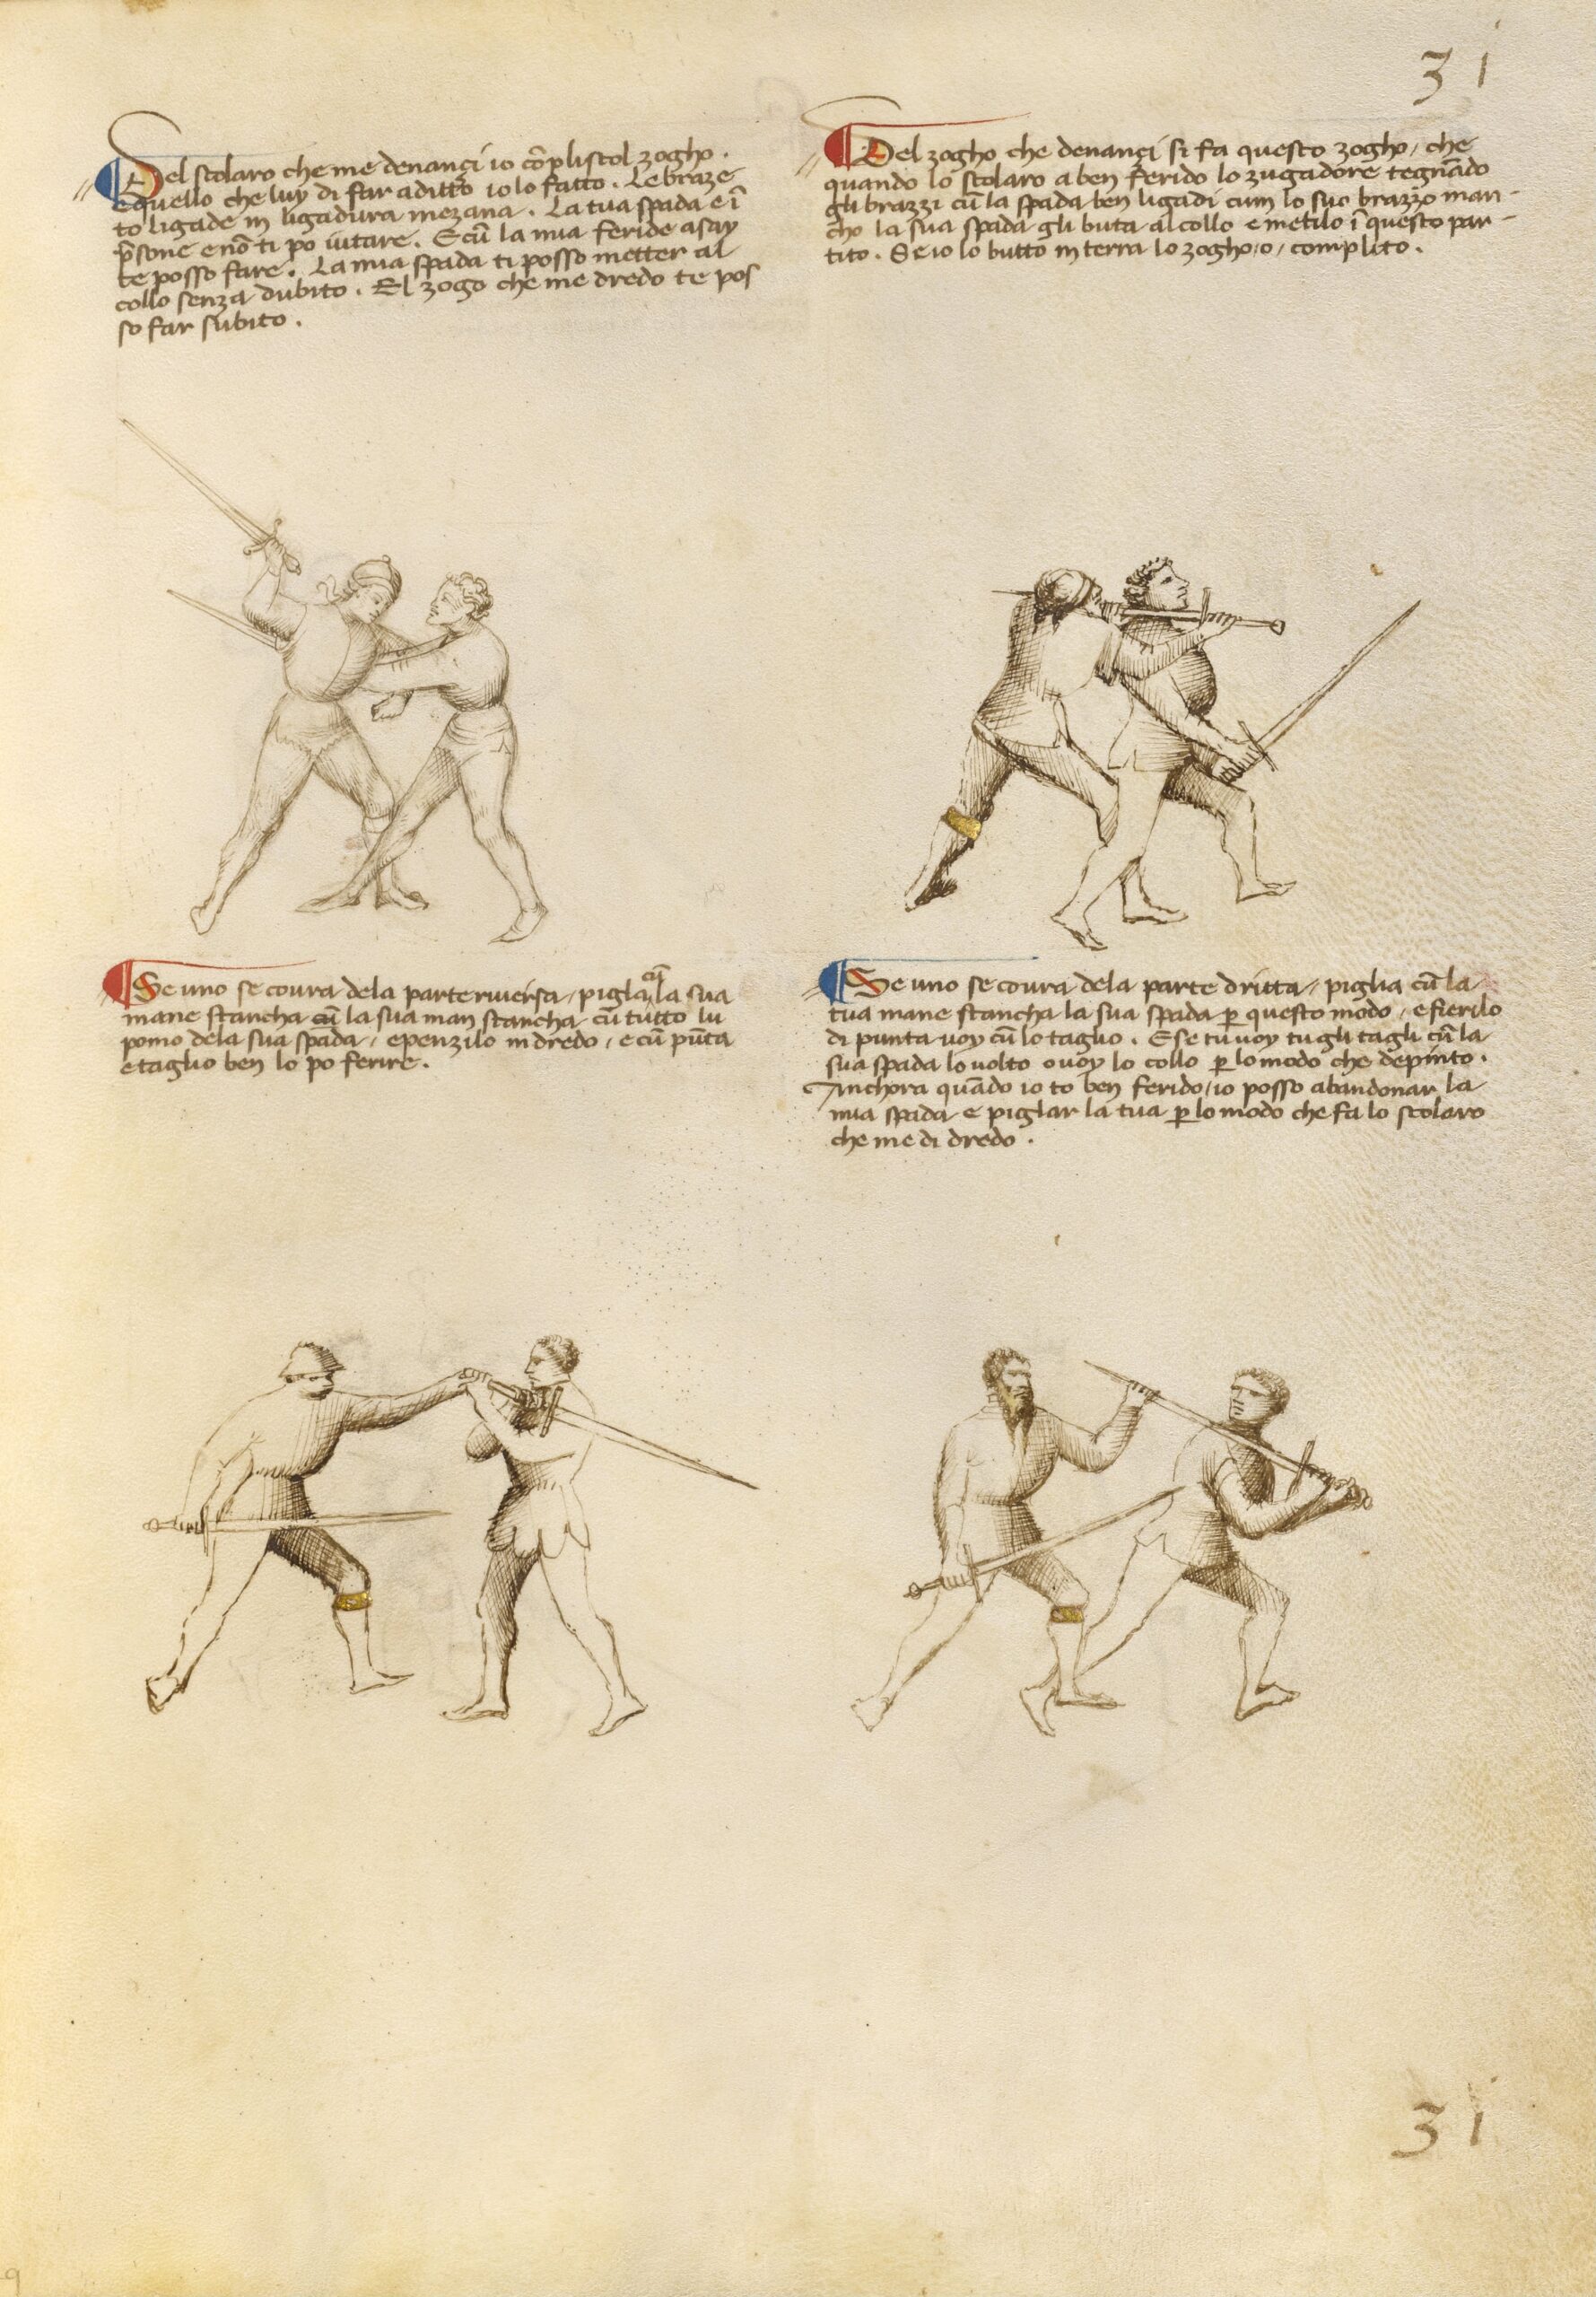 31
Del scolaro che me denançi io cõplisco'l zogho.
E quello che luy di far a ditto io lo fatto. Le braze
to ligade in ligadura mezana. La tua spada e ĩ
p̃sone e nõ ti po iutare. E cũ la mia feride asay
te posso fare. La mia spada ti posso metter al
collo senza dubito. El zogo che me dredo te pos
so far subito.
Del zogho che denançi si fa questo zogho, che
quando lo scolaro a ben ferido lo zugadore tegnãdo
gli brazzi cũ la spada ben ligadi cum lo suo brazzo man-
cho la sua spada gli buta al collo e metilo ĩ questo par-
tito. Se io lo butto in terra lo zogho /o/ complito.
Se uno se covra de la parte riversa, pigla cũ la sua
mane stancha cũ la sua man stancha cũ tutto lu
pomo dela sua spada, e penzilo in dredo, e cũ pũta
e taglio ben lo po ferire.
Se uno se covra dela parte dritta, piglia cũ la
tua mane stancha la sua spada p̱ questo modo, e fierilo
di punta voy cũ lo taglio. E se tu voy tu gli tagli cũ la
sua spada lo volto o voy lo collo p̱ lo modo che depinto.
Anchora quãdo io to ben ferido, io posso abandonar la
mia spada e piglar la tua p̱ lo modo che fa lo scolaro
che me di dredo.
31